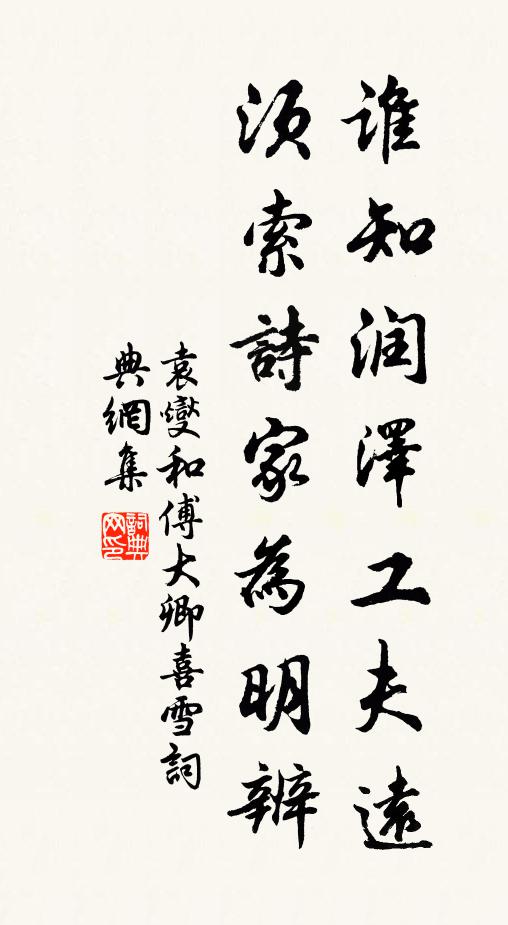 谁知润澤工夫遠
须索詩家為明辨
袁燮和傅大卿喜雪詞
典網集
詞典网印